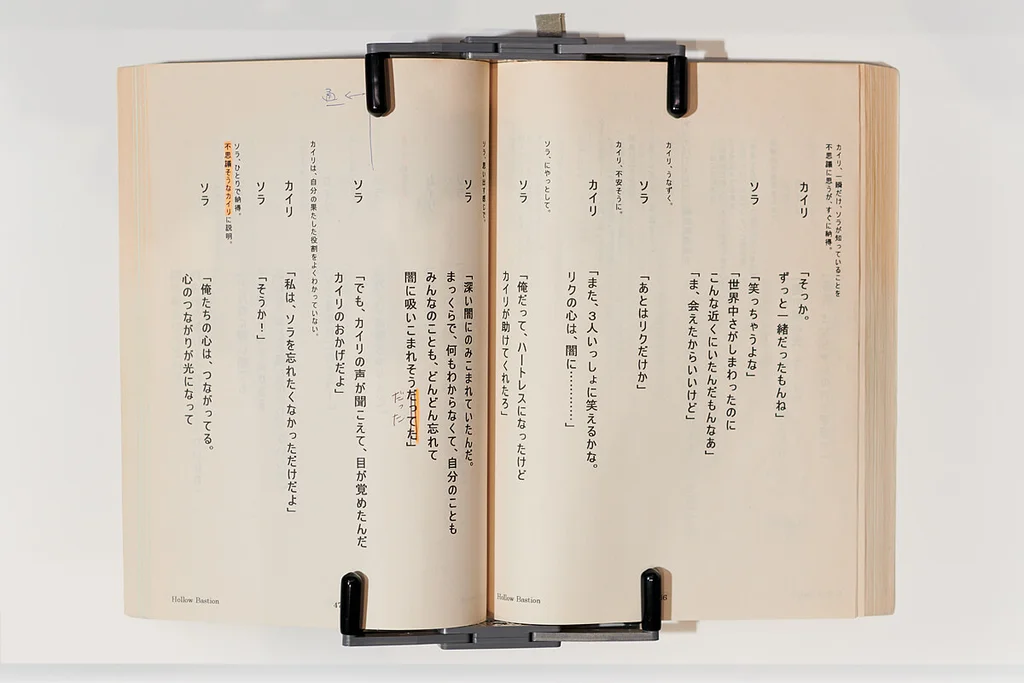 カイリ、一瞬だけ、ソラが知っていることを
不思議に思うが、すぐに納得。
カイリ
「そっか。
ずっと一緒だったもんね」
ソラ
「笑っちゃうよな」
「世界中さがしまわったのに
こんな近くにいたんだもんなあ」
「ま、会えたからいいけど」
カイリ、うなずく。
ソラ
「あとはリクだけか」
カイリ、不安そうに。
カイリ
「また、3人いっしょに笑えるかな。
リクの心は、闇に…………」
ソラ、にやっとして。
ソラ
「俺だって、ハートレスになったけど
カイリが助けてくれたろ」
Hollow Bastion
ソラ、思い出す感じで。
ソラ
「深い闇にのみこまれていたんだ。
まっくらで、何もわからなくて、自分のことも
みんなのことも、どんどん忘れて
闇に吸いこまれそうだってた」
だった
ソラ
「でも、カイリの声が聞こえて、目が覚めたんだ
カイリのおかげだよ」
カイリは、自分の果たした役割をよくわかっていない。
カイリ
「私は、ソラを忘れたくなかっただけだよ」
ソラ
「そうか！」
ソラ、ひとりで納得。
不思議そうなカイリに説明。
ソラ
「俺たちの心は、つながってる。
心のつながりが光になって
Hollow Bastion